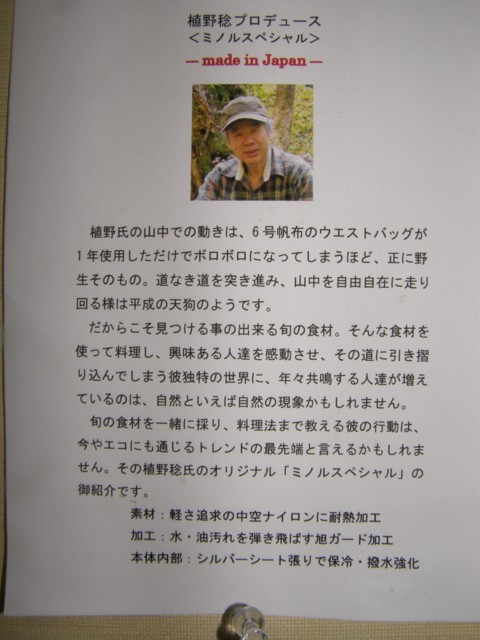 植野稔プロデュース
＜ミノルスペシャル＞
― made in Japan ―
植野氏の山中での動きは、6号帆布のウエストバッグが
1年使用しただけでボロボロになってしまうほど、正に野
生そのもの。道なき道を突き進み、山中を自由自在に走り
回る様は平成の天狗のようです。
だからこそ見つける事の出来る旬の食材。そんな食材を
使って料理し、興味ある人達を感動させ、その道に引き摺
り込んでしまう彼独特の世界に、年々共鳴する人達が増え
ているのは、自然といえば自然の現象かもしれません。
旬の食材を一緒に採り、料理法まで教える彼の行動は、
今やエコにも通じるトレンドの最先端と言えるかもしれま
せん。その植野稔氏のオリジナル「ミノルスペシャル」の
御紹介です。
素材：軽さ追求の中空ナイロンに耐熱加工
加工：水・油汚れを弾き飛ばす旭ガード加工
本体内部：シルバーシート張りで保冷・撥水強化